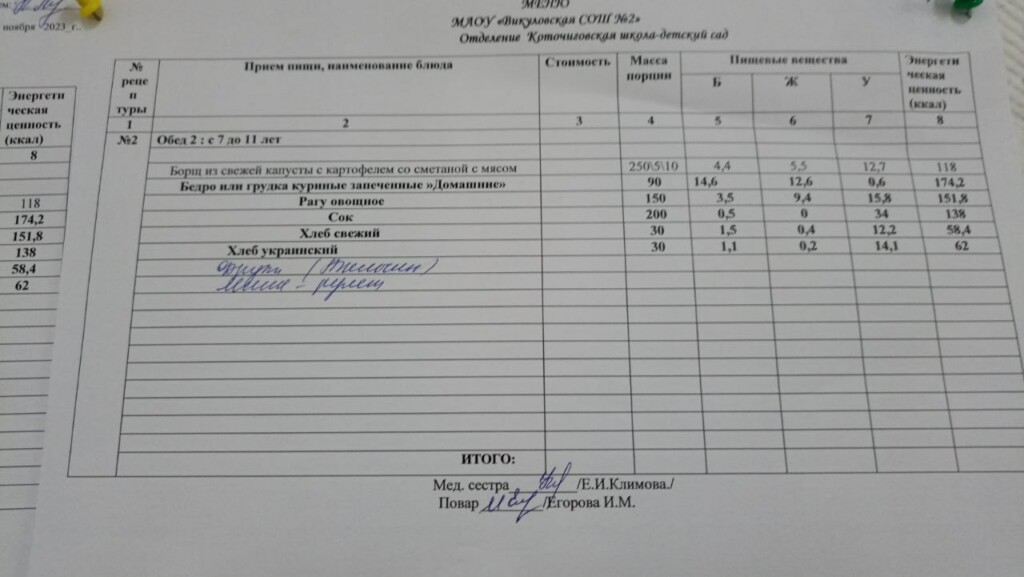 ем:
ноября 2023_г..
МЕНЮ
МАОУ «Викуловская СОШ №2»
Отделение Коточиговская школа-детский сад
Энергети
ческая
ценность
(ккал)
8
118
174,2
151,8
138
58,4
62
№ реце п туры | Прием пищи, наименование блюда | Стоимость | Масса порции | Пищевые вещества | Энергети ческая ценность (ккал)
Б | Ж | У
1 | 2 | 3 | 4 | 5 | 6 | 7 | 8
№2 | Обед 2 : с 7 до 11 лет
Борщ из свежей капусты с картофелем со сметаной с мясом | 250\5\10 | 4,4 | 5,5 | 12,7 | 118
Бедро или грудка куриные запеченные »Домашние» | 90 | 14,6 | 12,6 | 0,6 | 174,2
Рагу овощное | 150 | 3,5 | 9,4 | 15,8 | 151,8
Сок | 200 | 0,5 | 0 | 34 | 138
Хлеб свежий | 30 | 1,5 | 0,4 | 12,2 | 58,4
Хлеб украинский | 30 | 1,1 | 0,2 | 14,1 | 62
рулет
ИТОГО:
Мед. сестра /Е.И.Климова./
Повар /Егорова И.М.